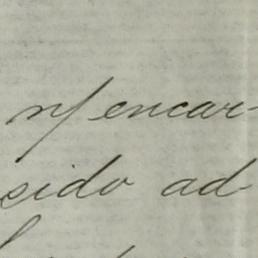 n/ encar-
sido ad